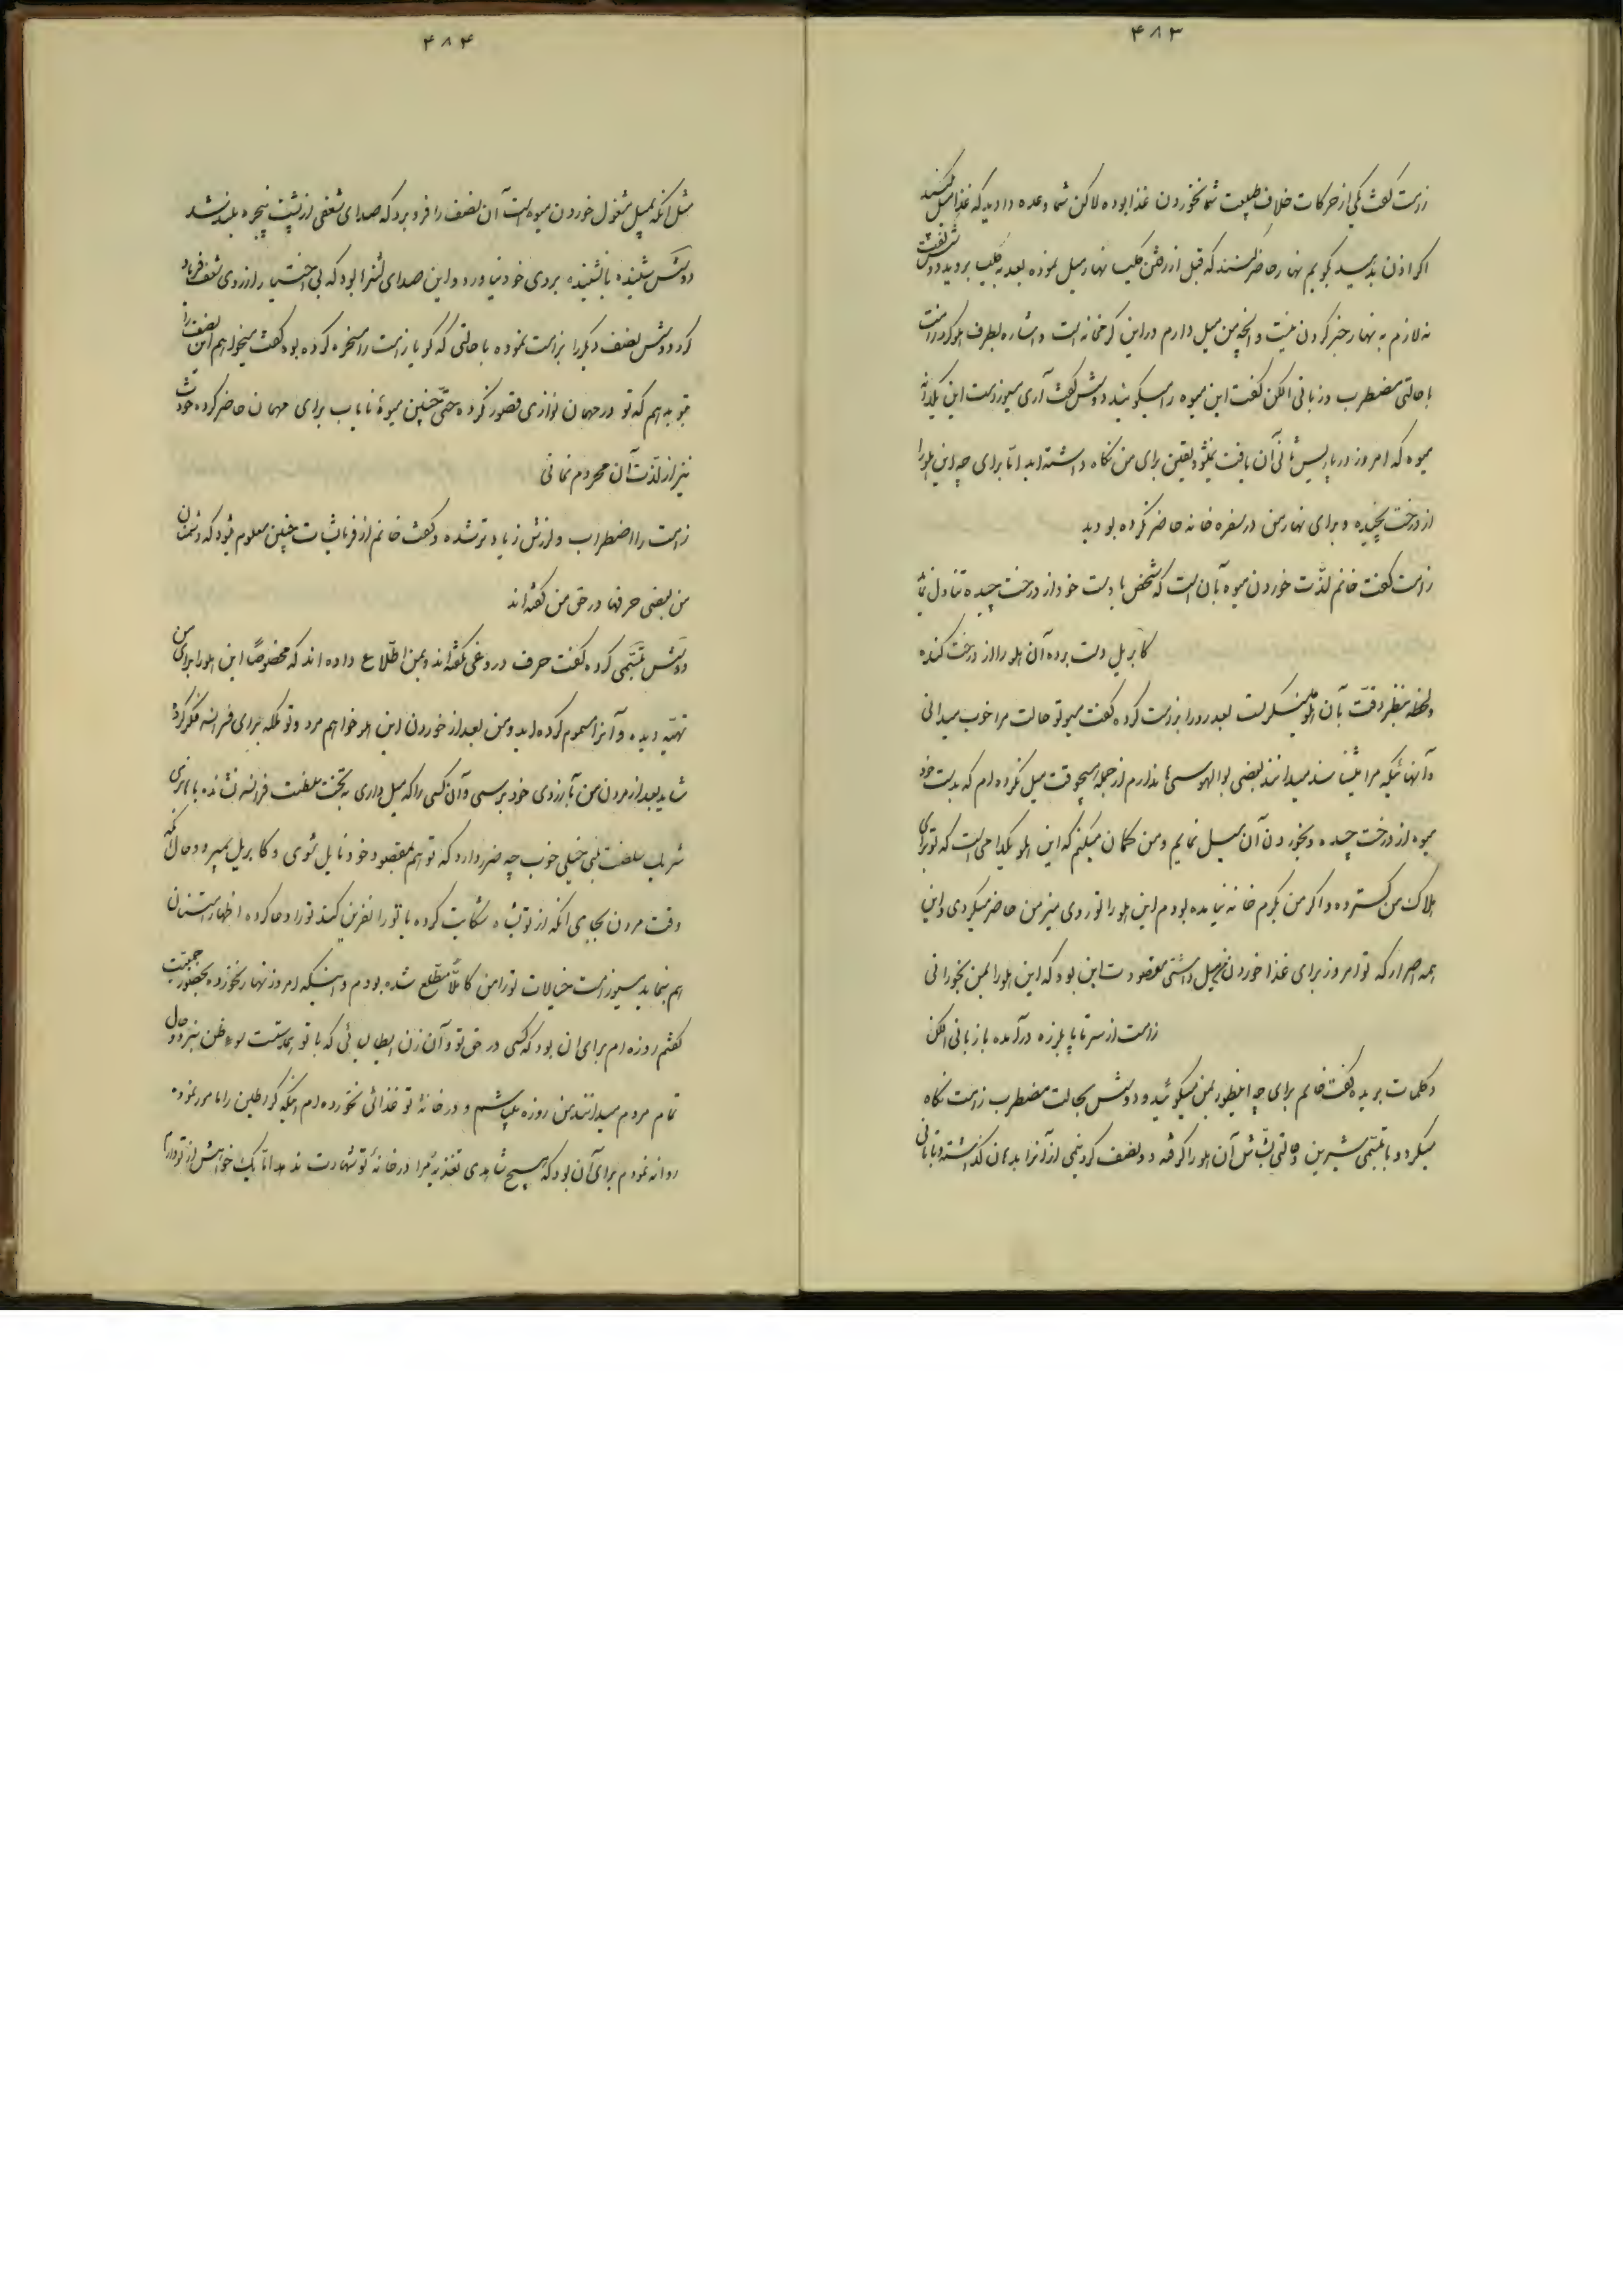 ۴۸۳
زامت گفت یکی از حرکات خلاف طبیعت شما نخوردن غذا بوده لاکن شما وعده دادید که غذا میل کنید
اگر اذن بدهید بگویم نهار حاضر کنند که قبل از رفتن کلیب نهار میل نموده بعد به کلیب بروید دوشس گفت
نه لازم به نهار خبر کردن نیست و آنچه من میل دارم در این گرمخانه است و اشاره بطرف هلو کرد زامت
با حالتی مضطرب و زبانی الکن گفت این میوه را میگوئید دوشس گفت آری مسیو زامت این یکدانه
میوه که امروز در پاریس ثانی آن یافت نمیشود یقین برای من نگاه داشته اید اما برای چه این هلو را
از درخت نچیده و برای نهار من در سفره خانه حاضر نکرده بودید
زامت گفت خانم لذت خوردن میوه بآن است که شخص با دست خود از درخت چیده تناول نماید
کابریل دست برده آن هلو را از درخت کنده
و لحظه بنظر دقت بآن هلو مینگریست بعد رو را بزامت کرده گفت مسیو تو حالت مرا خوب میدانی
و آنهائیکه مرا میشناسند میدانند بعضی بوالهوسیها ندارم از جمله هیچوقت میل نکرده ام که بدست خود
میوه از درخت چیده و بخوردن آن میل نمایم و من گمان میکنم که این هلو یکدامی است که تو برای
هلاک من گسترده و اگر من بگرم خانه نیامده بودم این هلو را تو روی میز من حاضر میکردی و این
همه اصرار که تو امروز برای غذا خوردن من میل داشتی مقصودت این بود که این هلو را بمن بخورانی
زامت از سر تا پا بلرزه درآمده با زبانی الکن
و کلمات بریده گفت خانم برای چه اینطور بمن میگوئید و دوشس بحالت مضطرب زامت نگاه
میکرد و با تبسمی شیرین و حالتی بشاش آن هلو را گرفته دو نصف کرد نیمی از آنرا بدهان گذاشته و بتأنی
۴۸۴
مثل آنکه بمیل مشغول خوردن میوه است آن نصف را فرو برد که صدای ضعفی از پشت پنجره بلند شد
دوشس شنیده یا نشنیده بروی خود نیاورد و این صدای لنرا بود که بی اختیار از روی شعف فریاد
کرد دوشس نصف دیگر را بزامت نموده با حالتی که گویا زامت را مسخره کرده بود گفت میخواهم این نصف را
بتو بدهم که تو در مهمان نوازی قصور نکرده حتی چنین میوهٔ نایاب برای مهمان حاضر کرده خودت
نیز از لذت آن محروم نمانی
زامت را اضطراب و لرزش زیادتر شده و گفت خانم از فرمایشات چنین معلوم میشود که دشمنان
من بعضی حرفها در حق من گفته اند
دوشس تبسمی کرده گفت حرف دروغی نگفته اند و بمن اطلاع داده اند که مخصوصاً این هلو را برای من
تهیه دیده و آنرا مسموم کرده اید و من بعد از خوردن این هلو خواهم مرد و تو ملکه برای فرانسه فکر کردهٔ
شاید بعد از مردن من بآرزوی خود برسی و آن کسی را که میل داری به تخت سلطنت فرانسه نشانده با هانری
شریک سلطنت بینی خیلی خوب چه ضرر دارد که تو هم بمقصود خود نایل شوی و کابریل بمیرد و حال آنکه
وقت مردن بجای آنکه از تو بشاه شکایت کرده یا تو را نفرین کند تو را دعا کرده اظهار امتنان
هم بنماید مسیو زامت خیالات تو را من کاملاً مطلع شده بودم و اینکه امروز نهار نخورده بحضور جمعیت
گفتم روزه ام برای آن بود که کسی در حق تو و آن زن ایطالیائی که با تو همدستت سوء ظن نبرد و حال
تمام مردم میدانند من روزه میباشم و در خانهٔ تو غذائی نخورده ام اینکه گراطلین را مامور نموده
روانه نمودم برای آن بود که هیچ شاهدی تغذیهٔ مرا در خانهٔ تو شهادت ندهد اما یک خواهش از تو دارم